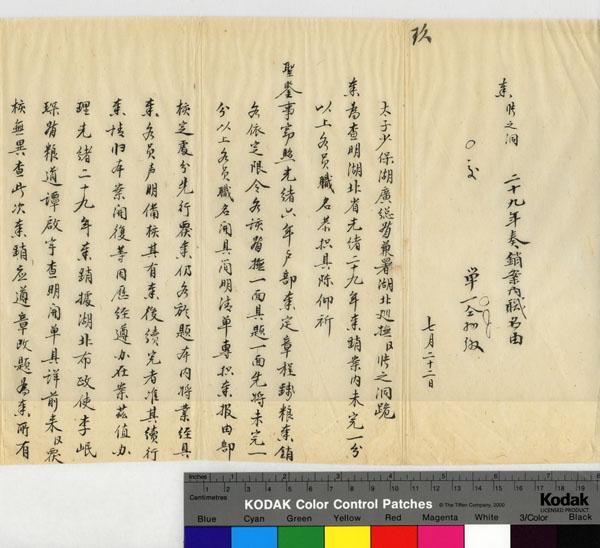 玖
奏 張之洞 二十九年奏銷案內職名由
單一全抄繳
七月二十二日
太子少保湖廣總督兼署湖北巡撫臣張之洞跪
奏為查明湖北省光緒二十九年奏銷案內未完一分
以上各員職名恭摺具陳仰祈
聖鑒事竊照光緒六年戶部奏定章程錢糧奏銷
各依定限令各該督撫一面具題一面先將未完一
分以上各員職名開具簡明清單專摺奏報由部
核定處分先行覆奏仍各於題本內將業經具
奏各員聲明備核其有奏後續完者准其續行
奏請歸本案開復等因歷經遵辦在案茲值辦
理光緒二十九年奏銷據湖北布政使李岷
琛督糧道譚啟宇查明開單具詳前來臣覆
核無異查此次奏銷應遵章改題為奏所有
Inches
Centimetres
KODAK Color Control Patches
© The Tiffen Company, 2000
Kodak
LICENSED PRODUCT
Blue Cyan Green Yellow Red Magenta White 3/Color Black